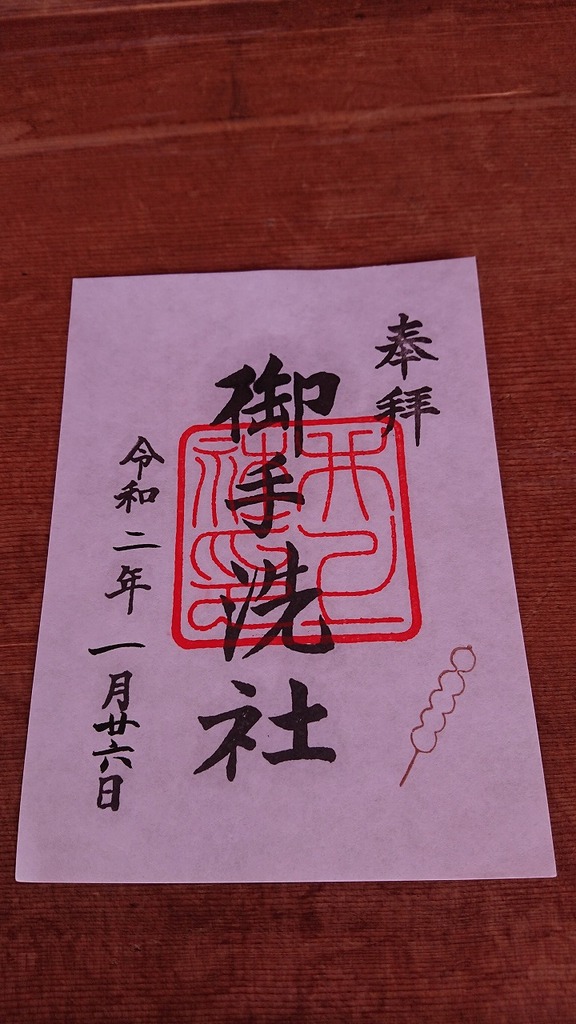 奉拝
御手洗社
令和二年一月廿六日